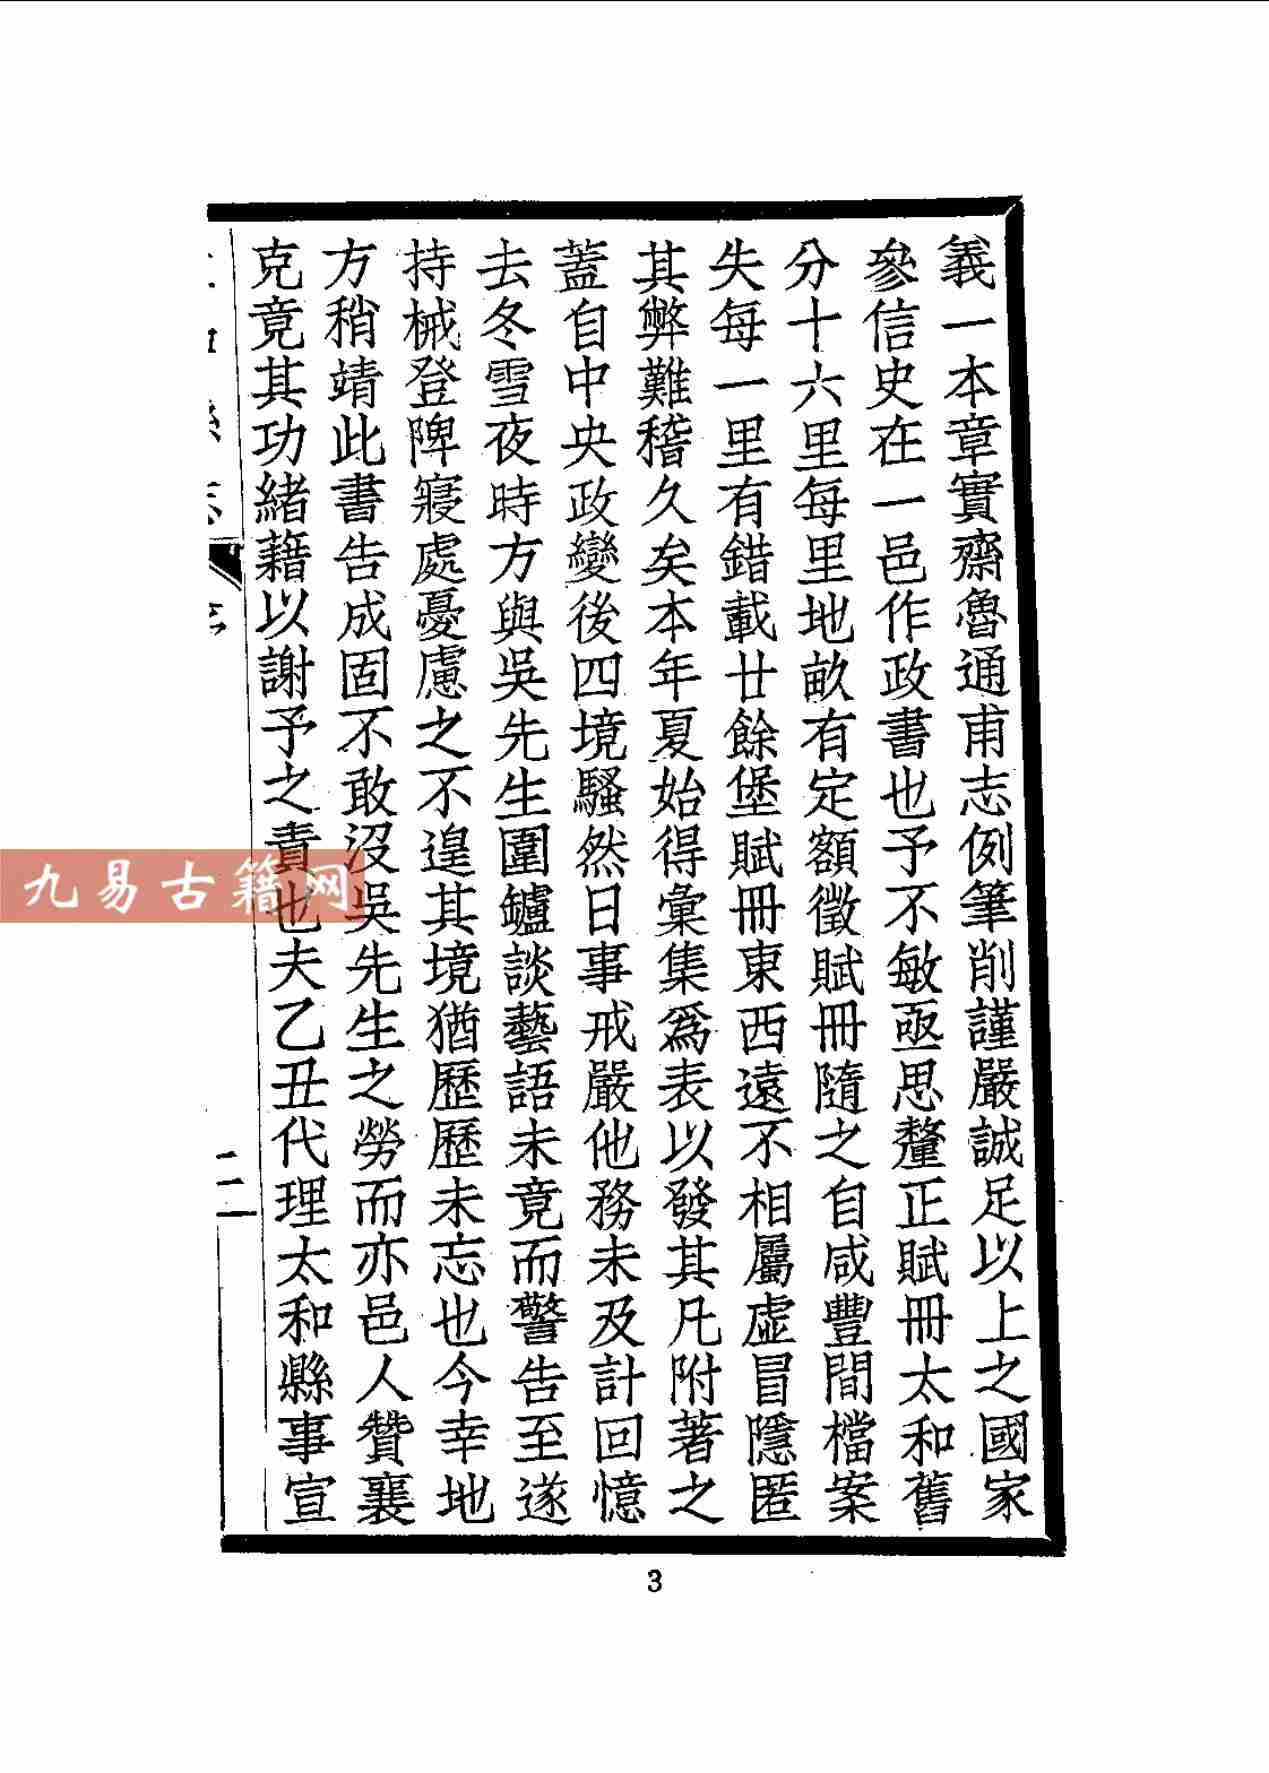 義一本章實齋魯通甫志例筆削謹嚴誠足以上之國家
參信史在一邑作政書也予不敏亟思釐正賦冊太和舊
分十六里每里地畝有定額徵賦冊隨之自咸豐間檔案
失每一里有錯載廿餘堡賦冊東西遠不相屬虛冒隱匿
其弊難稽久矣本年夏始得彙集爲表以發其凡附著之
蓋自中央政變後四境騷然日事戒嚴他務未及計回憶
去冬雪夜時方與吳先生圍鑪談藝語未竟而警告至遂
持械登陴寢處憂慮之不遑其境猶歷歷未忘也今幸地
方稍靖此書告成固不敢沒吳先生之勞而亦邑人贊襄
克竟其功緒藉以謝予之責也夫乙丑代理太和縣事宣
二
3
九易古籍网